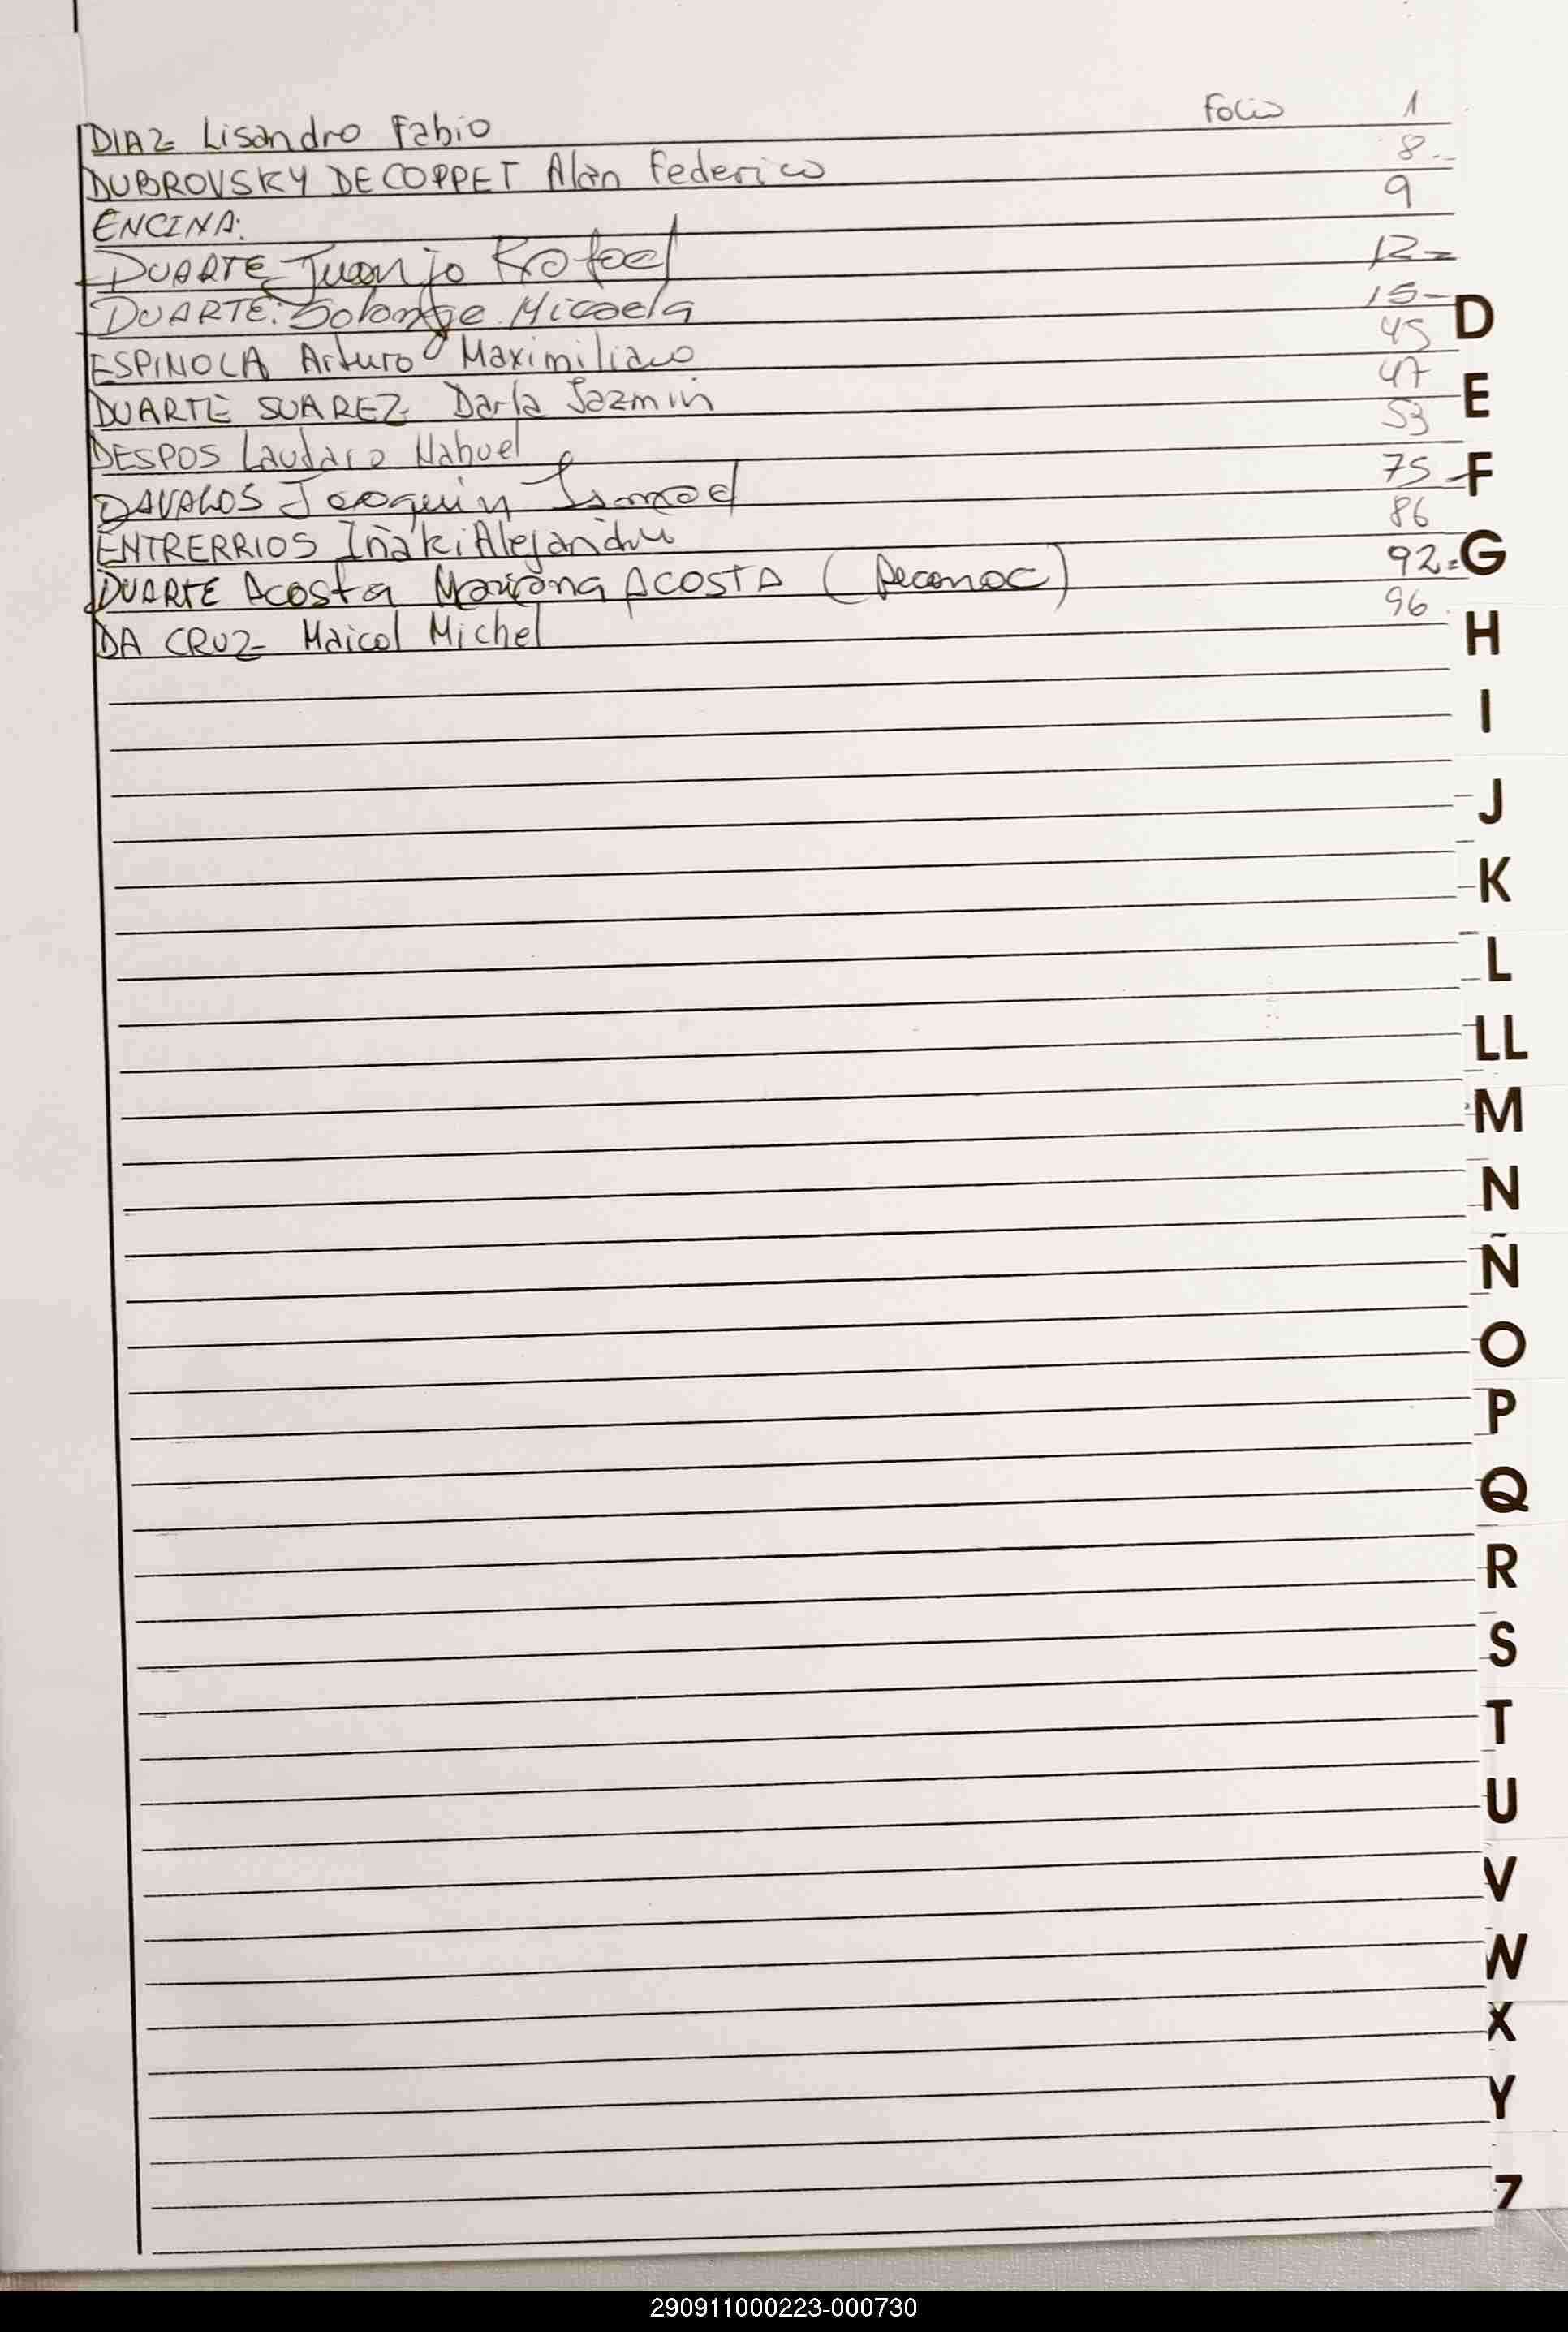 DIAZ Lisandro Fabio Folio 1
DUBROVSKY DE COPPET Alan Federico 8
ENCINA. 9
DUARTE Juanjo Rafael 12
DUARTE: Solange Micaela 15
ESPINOLA Arturo Maximiliano 45
DUARTE SUAREZ Darla Jazmin 47
DESPOS Lautaro Nahuel 53
DAVALOS Joaquin Ismael 75
ENTRERRIOS Iñaki Alejandro 86
DUARTE Acosta Mariana ACOSTA (Reconoc) 92
DA CRUZ Maicol Michel 96
D
E
F
G
H
I
J
K
L
LL
M
N
Ñ
O
P
Q
R
S
T
U
V
W
X
Y
Z
290911000223-000730